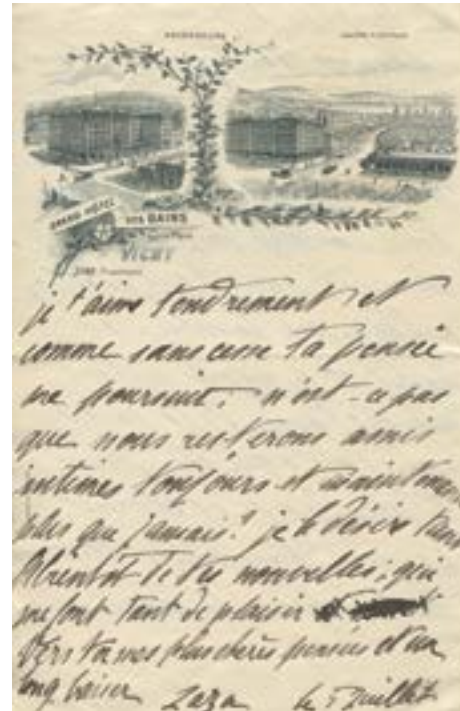 GRAND HÔTEL DES BAINS
VICHY
je t'aime tendrement et
comme sans cesse ta pensée
me poursuit. n'est-ce pas
que nous resterons amis
intimes toujours et
plus que jamais! je le désire tant
A bientôt de tes nouvelles, qui
me font tant de plaisir
Vers toi mes plus chères pensées et un
long baiser Zaza le 5 Juillet